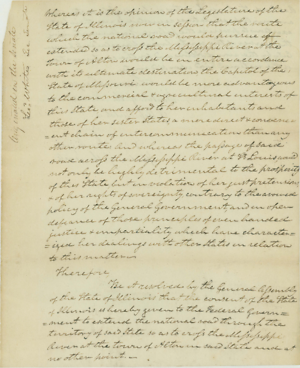 Whereas it is the opinion of the Legislature of the
State of Illinois now in session that the route
which the national road would pursue if
extended so as to cross the Mississippi River at the
town of Alton would be in entire accordance
with its ultimate destination the Capital of the
State of Missouri would be more advantageous
to the commercial & agricultural interests of
this State and afford to her inhabitants and
those of her sister States a more direct & conveni-
ent chain of intercommunication than any
other route And whereas the passage of said
road across the Mississippi River at St Louis would
not only be highly detrimental to the prosperity
of this State but in violation of her just pretensions
& of her right of sovereignty contrary to the avowed
policy of the General Government and in open
defiance of those principles of even handed
justice & impartiality which have character-
ized her dealings with other States in relation
to this matter
Therefore,
Be it resolved by the General Assembly
of the State of Illinois that the consent of the State
of Illinois is hereby given to the Federal Govern-
ment to extend the national road through the
territory of said State so as to cross the Mississippi
River at the town of Alton in said State and at
no other point